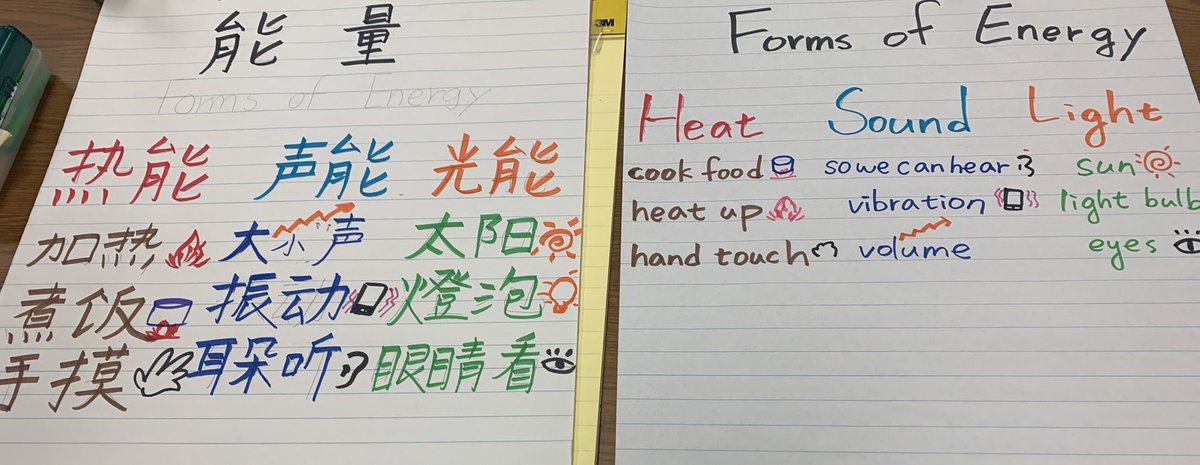 能量
Forms of Energy
热能 声能 光能
加热 大小声 太阳
煮饭 振动 燈泡
手摸 耳朵听 眼睛看
3M
Forms of Energy
Heat Sound Light
cook food so we can hear sun
heat up vibration light bulb
hand touch volume eyes